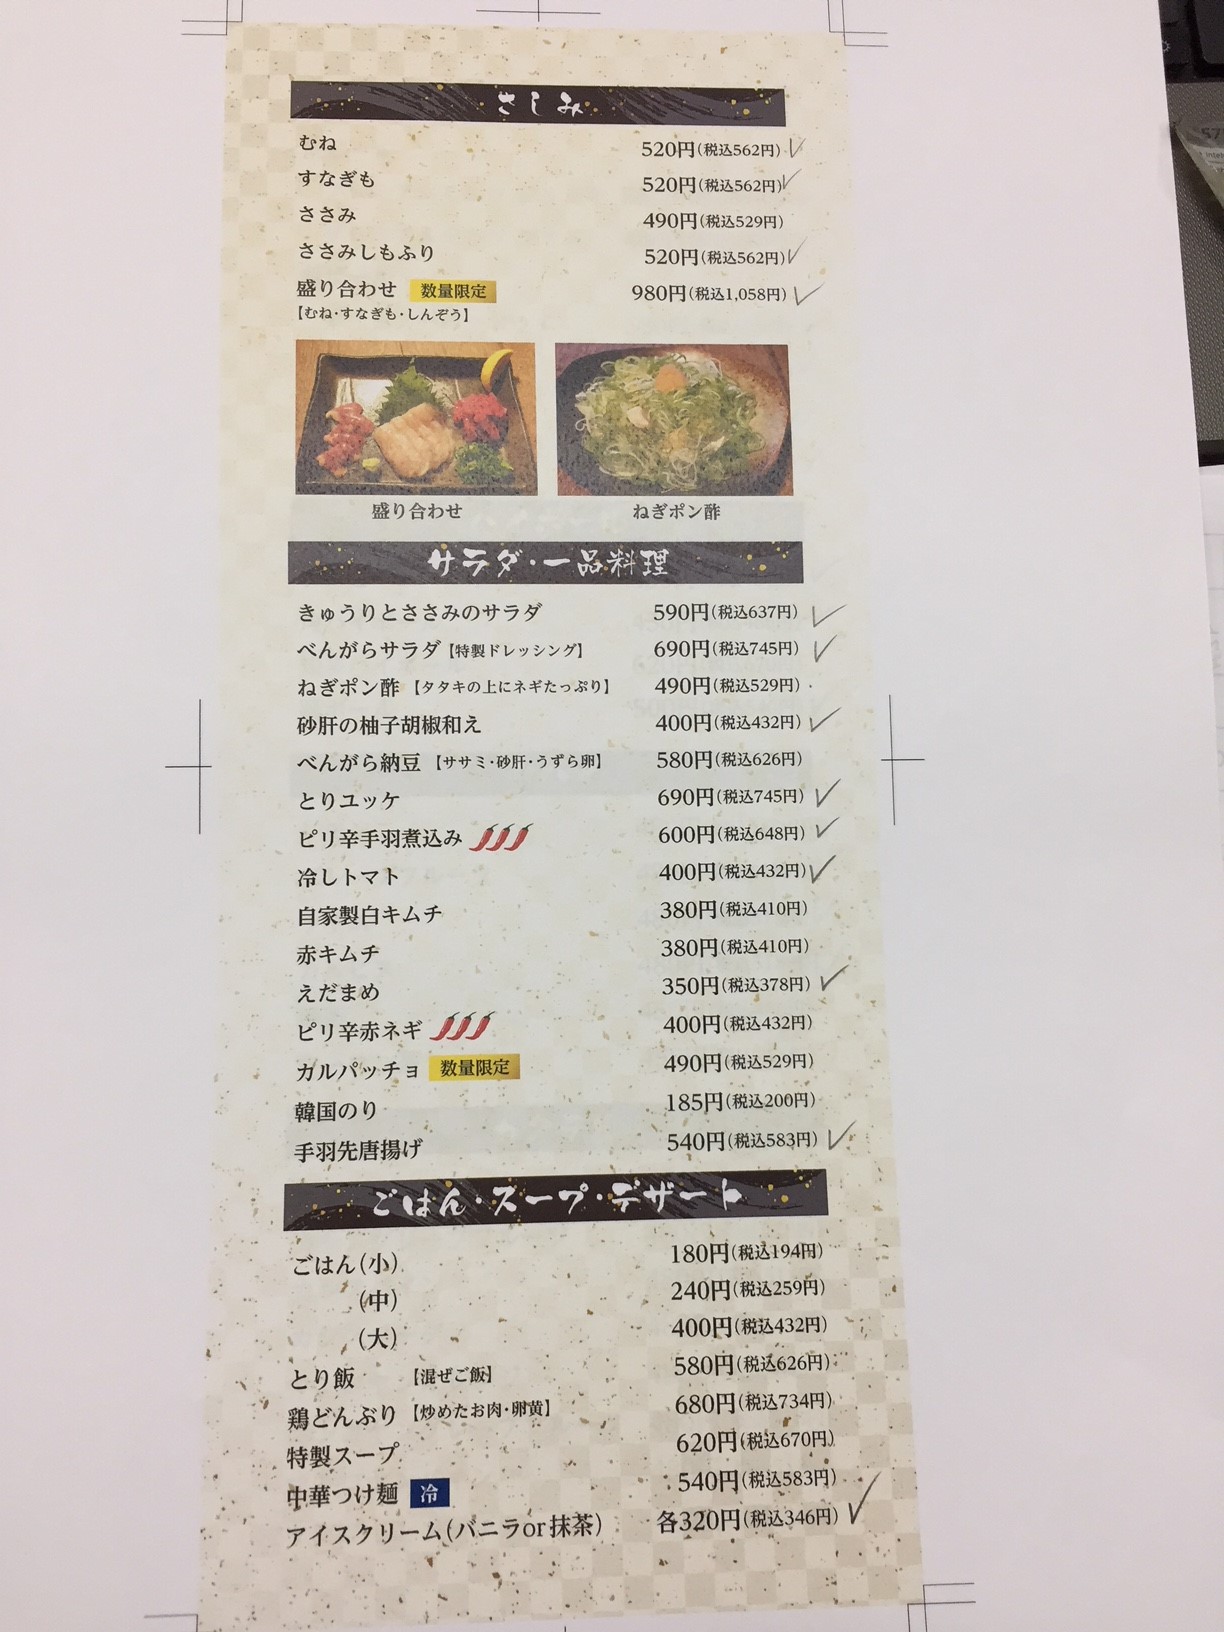 さしみ
むね 520円(税込562円)
すなぎも 520円(税込562円)
ささみ 490円(税込529円)
ささみしもふり 520円(税込562円)
盛り合わせ 数量限定 980円(税込1,058円)
【むね・すなぎも・しんぞう】
盛り合わせ ねぎポン酢
サラダ・一品料理
きゅうりとささみのサラダ 590円(税込637円)
べんがらサラダ【特製ドレッシング】 690円(税込745円)
ねぎポン酢【タタキの上にネギたっぷり】 490円(税込529円)
砂肝の柚子胡椒和え 400円(税込432円)
べんがら納豆【ササミ・砂肝・うずら卵】 580円(税込626円)
とりユッケ 690円(税込745円)
ピリ辛手羽煮込み 600円(税込648円)
冷しトマト 400円(税込432円)
自家製白キムチ 380円(税込410円)
赤キムチ 380円(税込410円)
えだまめ 350円(税込378円)
ピリ辛赤ネギ 400円(税込432円)
カルパッチョ 数量限定 490円(税込529円)
韓国のり 185円(税込200円)
手羽先唐揚げ 540円(税込583円)
ごはん・スープ・デザート
ごはん(小) 180円(税込194円)
(中) 240円(税込259円)
(大) 400円(税込432円)
とり飯 【混ぜご飯】 580円(税込626円)
鶏どんぶり【炒めたお肉・卵黄】 680円(税込734円)
特製スープ 620円(税込670円)
中華つけ麺 冷 540円(税込583円)
アイスクリーム(バニラor抹茶) 各320円(税込346円)